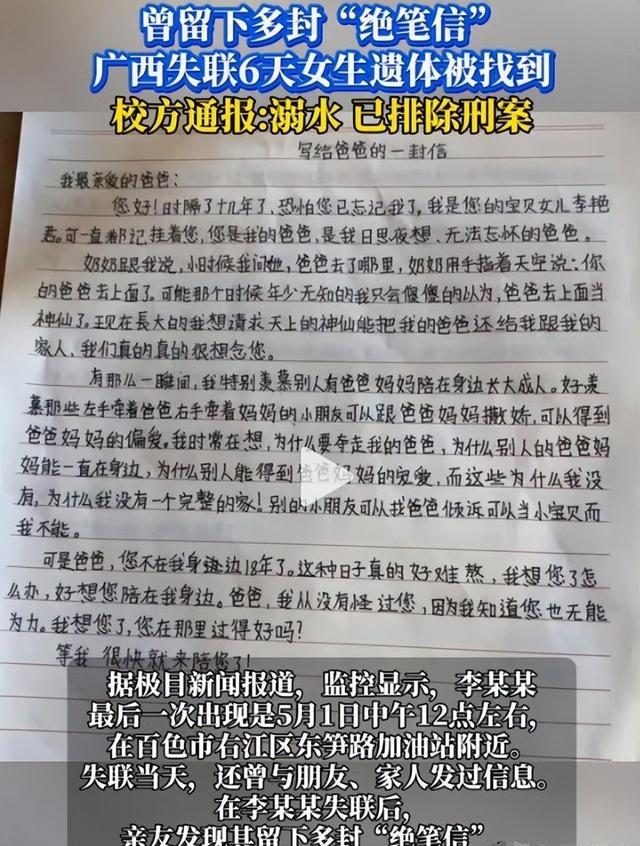 曾留下多封“绝笔信”
广西失联6天女生遗体被找到
校方通报:溺水 已排除刑案
写给爸爸的一封信
我最亲爱的爸爸：
您好！时隔了十几年了，恐怕您已忘记我了，我是您的宝贝女儿李艳
君。可一直都记挂着您，您是我的爸爸，是我日思夜想、无法忘怀的爸爸。
奶奶跟我说，小时候我问她，爸爸去了哪里，奶奶用手指着天空说：你
的爸爸去上面了。可能那个时候年少无知的我只会傻傻的以为，爸爸去上面当
神仙了。现在長大的我想请求天上的神仙能把我的爸爸还给我跟我的
家人，我们真的真的很想念您。
有那么一瞬间，我特别羡慕别人有爸爸妈妈陪在身边长大成人。好羡
慕那些左手牵着爸爸右手牵着妈妈的小朋友可以跟爸爸妈妈撒娇，可以得到
爸爸妈妈的偏爱。我时常在想，为什么要夺走我的爸爸，为什么别人的爸爸妈
妈能一直在身边，为什么别人能得到爸爸妈妈的宠爱，而这些为什么我没
有，为什么我没有一个完整的家！别的小朋友可以找爸爸倾诉可以当小宝贝而
我不能。
可是爸爸，您不在我身边边18年了。这种日子真的好难熬，我想您了怎
么办，好想您陪在我身边。爸爸，我从没有怪过您，因为我知道您也无能
为力。我想您了，您在那里过得好吗？
等我 很快就来陪您了！
据极目新闻报道，监控显示，李某某
最后一次出现是5月1日中午12点左右，
在百色市右江区东笋路加油站附近。
失联当天，还曾与朋友、家人发过信息。
在李某某失联后，
亲友发现其留下多封“绝笔信”